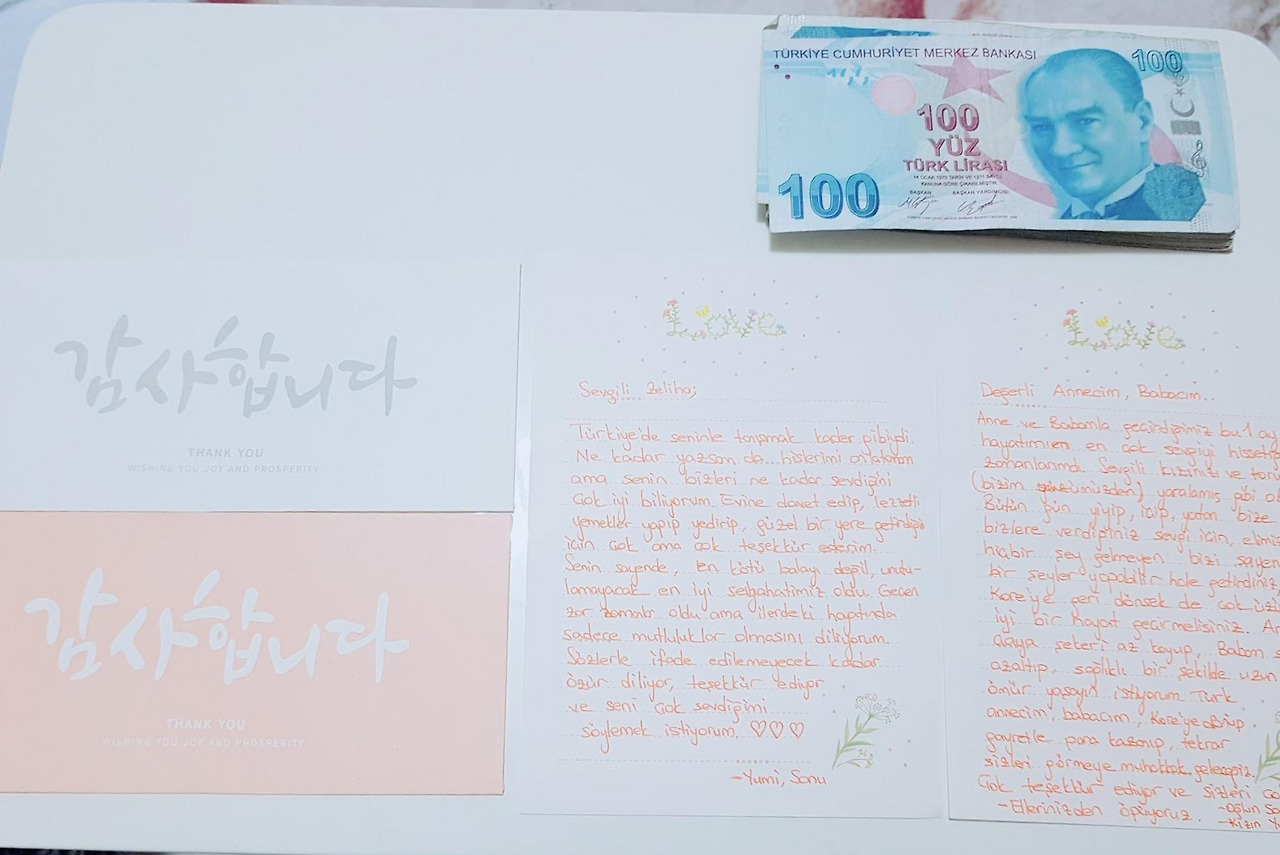 TÜRKİYE CUMHURİYET MERKEZ BANKASI
100
100
YÜZ
TÜRK LİRASI
14 OCAK 1970 TARİH VE 1211 SAYILI
KANUNA GÖRE ÇIKARILMIŞTIR
BAŞKAN BAŞKAN YARDIMCISI
100
감사합니다
THANK YOU
WISHING YOU JOY AND PROSPERITY
감사합니다
THANK YOU
WISHING YOU JOY AND PROSPERITY
Love
Sevgili Zeliha;
Türkiye'de seninle tanışmak kader gibiydi.
Ne kadar yazsam da... hislerimi anlatamam
ama senin bizleri ne kadar sevdiğini
çok iyi biliyorum. Evine davet edip, lezzetli
yemekler yapıp yedirip, güzel bir yere getirdiğin
için çok ama çok teşekkür ederim.
Senin sayende, en kötü balayı değil, unutu-
lamayacak en iyi seyahatimiz oldu. Geçen
zor zamanlar oldu ama ilerdeki hayatında
sadece mutluluklar olmasını diliyorum.
Sözlerle ifade edilemeyecek kadar
özür diliyor, teşekkür ediyor
ve seni çok sevdiğimi
söylemek istiyorum. ♡♡♡
-Yumi, Sonu
Love
Değerli Annecim, Babacım..
Anne ve Babamla geçirdiğimiz bu 1 ay
hayatımın en çok sevgiyi
zamanlarımdı. Sevgili kızınızı ve
(bizim yüzümüzden) yaralamış gibi
Bütün gün yiyip, içip, yatan bize
bizlere verdiğiniz sevgi için,
hiçbir şey gelmeyen bizi
bir şeyler yapabilir hale getirdiniz
Kore'ye geri dönsek de çok
iyi bir hayat geçirmelisiniz.
çaya şekeri az koyup, Babam
azaltıp, sağlıklı bir şekilde uzun
ömür yaşayın istiyorum. Türk
annecim, babacım, Kore'ye dönüp
gayretle para kazanıp, tekrar
sizleri görmeye muhakkak geleceğiz.
Çok teşekkür ediyor ve sizleri
-Ellerinizden öpüyoruz. -Oğlun
-Kızın